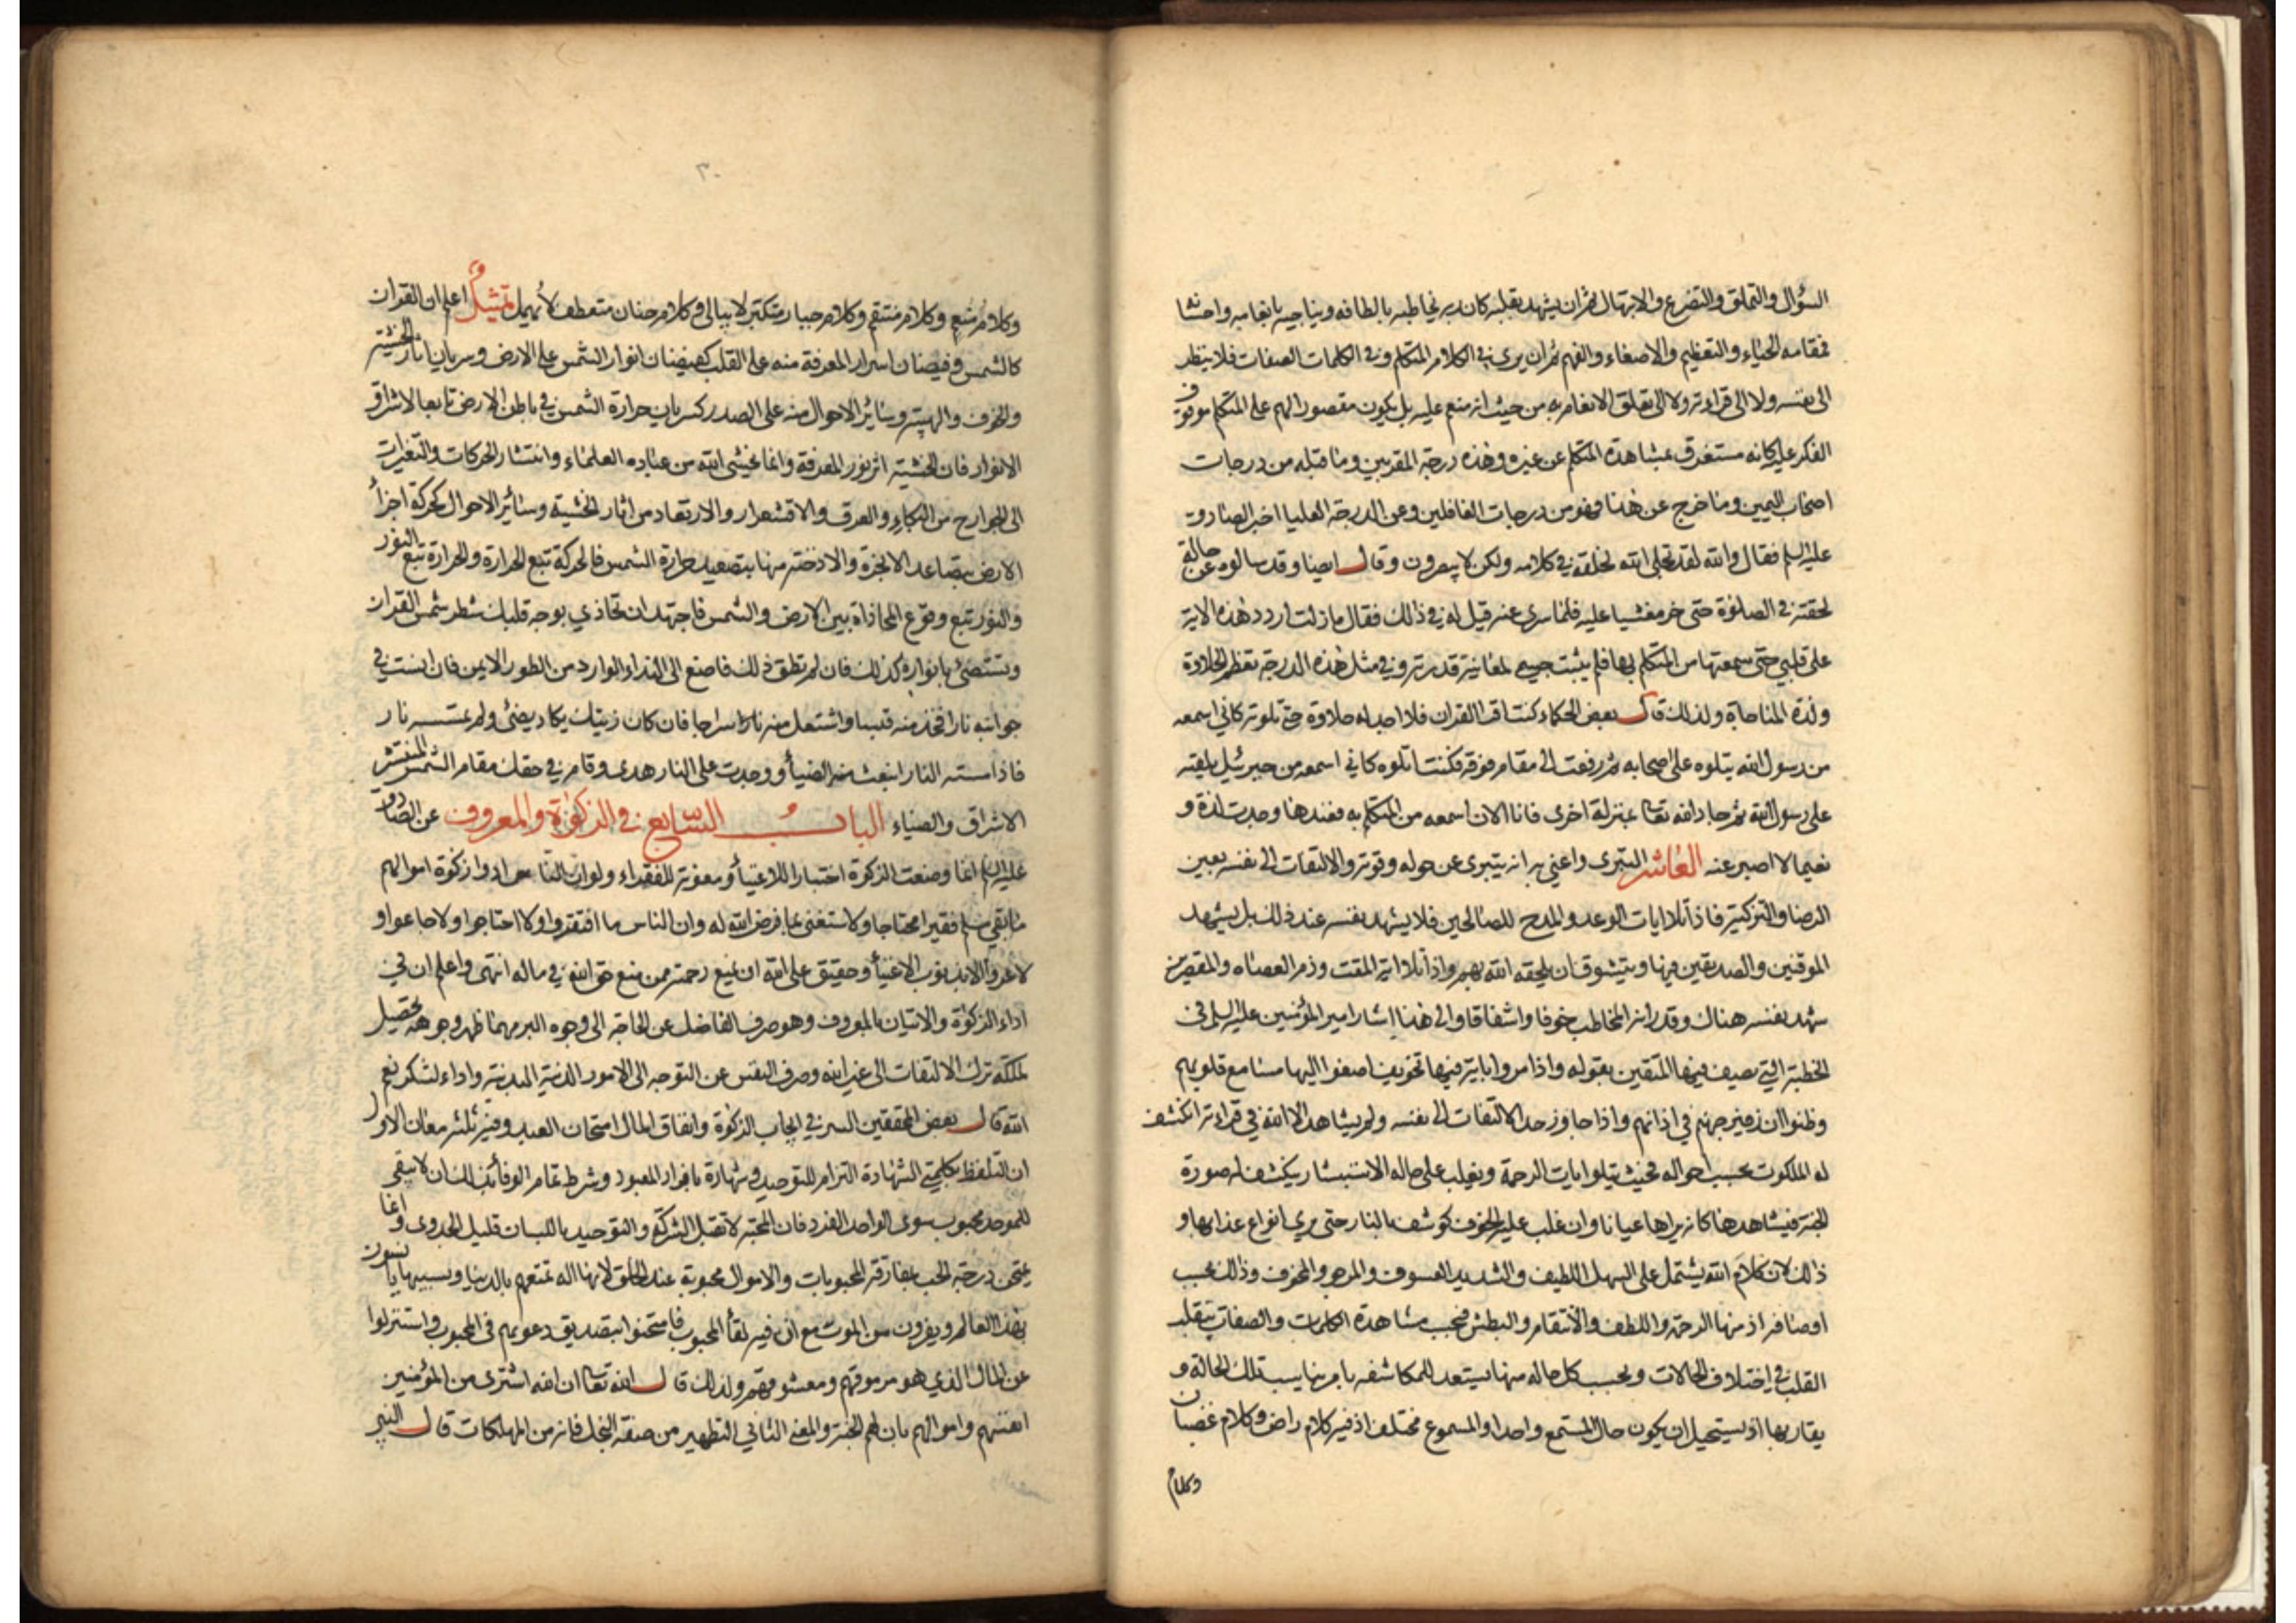 السؤال والتملق والتضرع والابتهال ثم ان يشهد بقلبه كان ربه يخاطبه بالطافه ويناجيه بانعامه واحسانه
فمقامه الحياء والتعظيم والاصغاء والفهم ثم ان يرى في الكلام المتكلم وفي الكلمات الصفات فلا ينظر
الى نفسه ولا الى قراءته ولا الى تعلق الانعام به من حيث انه منعم عليه بل يكون مقصور الهم على المتكلم موقوف
الفكر عليه كانه مستغرق بمشاهدة المتكلم عن غيره وهذه درجة المقربين وما قبله من درجات
اصحاب اليمين وما خرج عن هذا فهو من درجات الغافلين وعن الدرجة العليا اخبر الصادق
عليه السلم فقال والله لقد تجلى الله لخلقه في كلامه ولكن لا يبصرون وقال ايضا وقد سالوه عن حالة
لحقته في الصلوة حتى خر مغشيا عليه فلما سرى عنه قيل له في ذلك فقال ما زلت اردد هذه الاية
على قلبي حتى سمعتها من المتكلم بها فلم يثبت جسمي لمعاينة قدرته وفي مثل هذه الدرجة تعظم الحلاوة
ولذة المناجاة ولذلك قال بعض الحكماء كنت اقرا القران فلا اجد له حلاوة حتى تلوته كاني اسمعه
من رسول الله يتلوه على اصحابه ثم رفعت الى مقام فوقه فكنت اتلوه كاني اسمعه من جبرئيل يلقيه
على رسول الله ثم جاء الله تعا بمنزلة اخرى فانا الان اسمعه من المتكلم به فعندها وجدت لذة و
نعيما لا اصبر عنه العاشر التبرى واعني به انه يتبرى عن حوله وقوته والالتفات الى نفسه بعين
الرضا والتزكية فاذا تلا ايات الوعد والمدح للصالحين فلا يشهد نفسه عند ذلك بل يشهد
الموقنين والصديقين فيها ويتشوق ان يلحقه الله بهم واذا تلا اية المقت وذم العصاه والمقصرين
شهد نفسه هناك وقدر انه المخاطب خوفا واشفاقا والى هذا اشار امير المؤمنين عليه السلم في
الخطبة التي يصف فيها المتقين بقوله واذا مروا باية فيها تخويف اصغوا اليها مسامع قلوبهم
وظنوا ان زفير جهنم في اذانهم واذا جاوز حد الالتفات الى نفسه ولم يشاهد الا الله في قراءته انكشف
له الملكوت بحسب احواله فحيث يتلوا ايات الرحمة ويغلب على حاله الاستبشار ينكشف له صورة
الجنة فيشاهدها كانه يراها عيانا وان غلب عليه الخوف كوشف بالنار حتى يرى انواع عذابها و
ذلك لان كلام الله يشتمل على السهل اللطيف والشديد العسوف والمرجو والمخوف وذلك بحسب
اوصافه اذ منها الرحمة واللطف والانتقام والبطش فبحسب مشاهدة الكلمات والصفات يتقلب
القلب في اختلاف الحالات وبحسب كل حاله منها يستعد للمكاشفه بامر يناسب تلك الحالة و
يقاربها اذ يستحيل ان يكون حال المستمع واحدا والمسموع مختلف اذ فيه كلام راض وكلام غضبان
وكلام
٣٠
وكلام منعم وكلام منتقم وكلام جبار متكبر لا يبالى وكلام حنان متعطف لا يهمل تمثيل اعلم ان القران
كالشمس وفيضان اسرار المعرفة منه على القلب كفيضان انوار الشمس على الارض وسريان اثار الخشية
والخوف والهيبة وسائر الاحوال منه على الصدر كسريان حرارة الشمس في باطن الارض تابعا لاشراق
الانوار فان الخشية اثر نور المعرفة وانما يخشى الله من عباده العلماء وانتشار الحركات والتغيرات
الى الجوارح من البكاء والعرق والاقشعرار والارتعاد من اثار الخشية وسائر الاحوال كحركة اجزاء
الارض بتصاعد الابخرة والادخنة منها بتصعيد حرارة الشمس فالحركة تتبع الحرارة والحرارة تتبع النور
والنور يتبع وقوع المحاذاة بين الارض والشمس فاجتهد ان تحاذي بوجه قلبك شطر شمس القران
وتستضئ بانواره كذلك فان لم تطق ذلك فاصغ الى النداء الوارد من الطور الايمن فان انست في
جوانبه نارا فخذ منه قبسا واشتعل منه نارا سراجا فان كان زيتك يكاد يضئ ولو لم تمسسه نار
فاذا مسته النار انبعث منه الضياء ووجدت على النار هدى وقام في حقك مقام الشمس المنتشر
الاشراق والضياء الباب السابع في الزكوة والمعروف عن الصادق
عليه السلم انما وضعت الزكوة اختبارا للاغنياء ومعونة للفقراء ولو ان الناس ادوا زكوة اموالهم
ما بقي مسلم فقيرا محتاجا ولاستغنى بما فرض الله له وان الناس ما افتقروا ولا احتاجوا ولا جاعوا و
لا عروا الا بذنوب الاغنياء وحقيق على الله ان يمنع رحمته ممن منع حق الله في ماله انتهى واعلم ان في
اداء الزكوة والاتيان بالمعروف وهو صرف الفاضل عن الحاجة الى وجوه البر مهما ظهر وجوهه تحصيل
لملكة ترك الالتفات الى غير الله وصرف النفس عن التوجه الى الامور الدنية البدنية واداء لشكر نعم
الله قال بعض المحققين السر في ايجاب الزكوة وانفاق المال امتحان العبد وفيه ثلثه معان الاول
ان التلفظ بكلمتي الشهادة التزام للتوحيد وشهادة بافراد المعبود وشرط تمام الوفاء بذلك ان لا يبقى
للموحد محبوب سوى الواحد الفرد فان المحبة لا تقبل الشركة والتوحيد باللسان قليل الجدوى وانما
يمتحن درجة الحب بمفارقة المحبوبات والاموال محبوبة عند الخلق لانها اله تمتعهم بالدنيا وبسببها يانسون
بهذا العالم ويفرون من الموت مع ان فيه لقاء المحبوب فامتحنوا بتصديق دعويهم في المحبوب واستنزلوا
عن المال الذي هو مرموقهم ومعشوقهم ولذلك قال الله تعا ان الله اشترى من المؤمنين
انفسهم واموالهم بان لهم الجنة والمعنى الثاني التطهير من صفة البخل فانه من المهلكات قال النبي